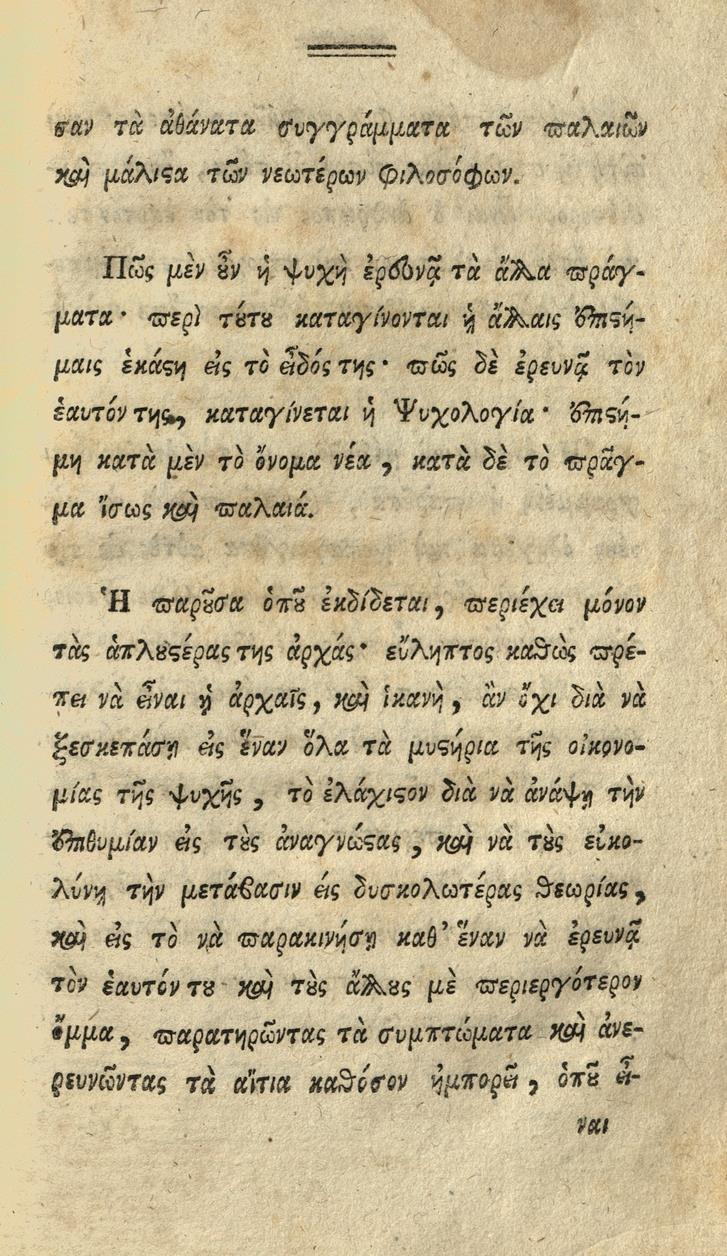 σαν τὰ ἀθάνατα συγγράμματα τῶν παλαιῶν
καὶ μάλιϛα τῶν νεωτέρων Φιλοσόφων.
Πῶς μὲν ȣ̓͂ν ἡ ψυχὴ ἐρευνᾷ τὰ ἄλλα πράγ-
ματα· περὶ τȣ́τȣ καταγίνονται ᾑ ἄλλαις ἐπιϛή-
μαις ἑκάϛη εἰς τὸ εἶδός της· πῶς δὲ ἐρευνᾷ τὸν
ἑαυτόν της, καταγίνεται ἡ Ψυχολογία· ἐπιϛή-
μη κατὰ μὲν τὸ ὄνομα νέα, κατὰ δὲ τὸ πρᾶγ-
μα ἴσως καὶ παλαιά.
Ἡ παρȣ͂σα ὁπȣ͂ ἐκδίδεται, περιέχει μόνον
τὰς ἁπλȣϛέρας της ἀρχάς· εὔληπτος καθὼς πρέ-
πει νὰ εἶναι ᾑ ἀρχαῖς, καὶ ἱκανὴ, ἂν ὄχι διὰ νὰ
ξεσκεπάσῃ εἰς ἕναν ὅλα τὰ μυϛήρια τῆς οἰκονο-
μίας τῆς ψυχῆς, τὸ ἐλάχιϛον διὰ νὰ ἀνάψῃ τὴν
ἐπιθυμίαν εἰς τȣ̀ς ἀναγνώϛας, καὶ νὰ τȣ̀ς εὐκο-
λύνῃ τὴν μετάβασιν εἰς δυσκολωτέρας θεωρίας,
καὶ εἰς τὸ νὰ παρακινήσῃ καθ' ἕναν νὰ ἐρευνᾷ
τὸν ἑαυτόν τȣ καὶ τȣ̀ς ἄλλȣς μὲ περιεργότερον
ὄμμα, παρατηρῶντας τὰ συμπτώματα καὶ ἀνε-
ρευνῶντας τὰ αἴτια καθόσον ἠμπορεῖ, ὁπȣ͂ εἶ-
ναι